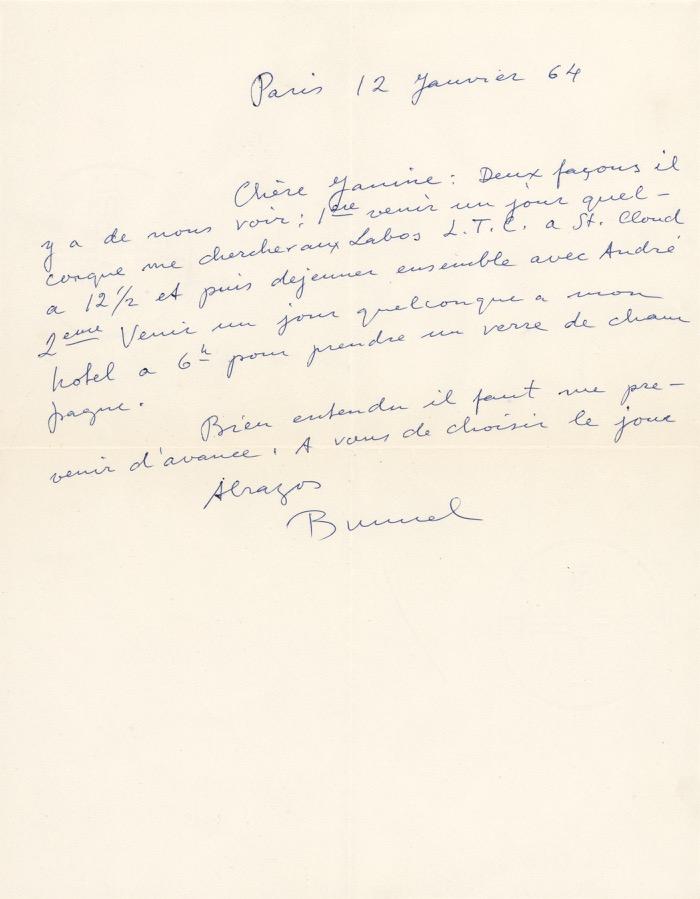 Paris 12 Janvier 64
Chère Janine: Deux façons il
y a de nous voir: 1ère venir un jour quel-
conque me chercher aux Labos L.T.C. a St. Cloud
a 12½ et puis dejeuner ensemble avec André
2eme Venir un jour quelconque a mon
hotel a 6h pour prendre un verre de cham
pagne.
Bien entendu il faut me pre-
venir d'avance. A vous de choisir le jour
Abrazos
Bunuel